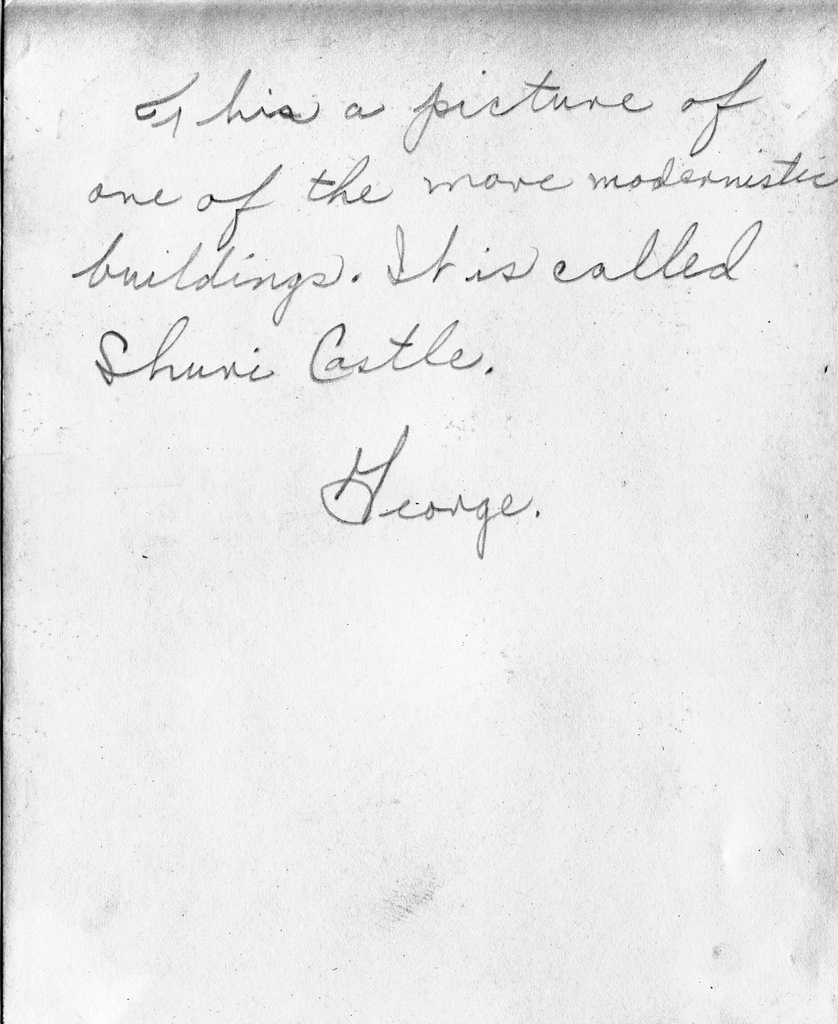 This a picture of
one of the more modernistic
buildings. It is called
Shuri Castle.
George.